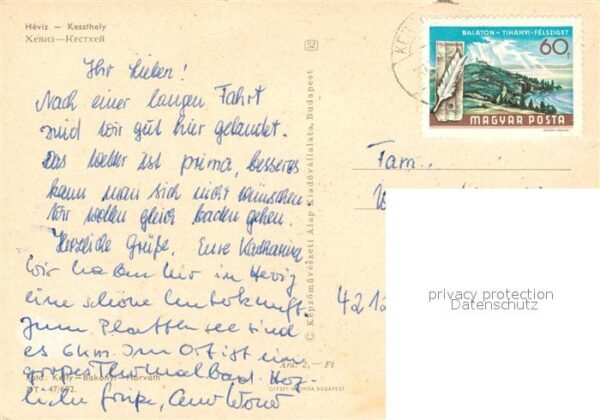 Hévíz – Keszthely
Хевиз—Кестхей
Ihr Lieben!
Nach einer langen Fahrt
sind wir gut hier gelandet.
Das Wetter ist prima, besseres
kann man sich nicht wünschen.
Wir wollen gleich baden gehen.
Herzliche Grüße. Eure Katharina
Wir haben hir in Heviz
eine schöne Unterkunft.
zum Plattensee sind
es 6 km. Im Ort ist ein
großes Thermalbad. Herz-
liche Grüße,
Foto: Kelly—Bakonyi—Horváth
BALATON – TIHANYI-FÉLSZIGET
60f
MAGYAR POSTA
SZ
© Képzőművészeti Alap Kiadóvállalata, Budapest
Fam.
4212
privacy protection
Datenschutz
Ára: 2,– Ft